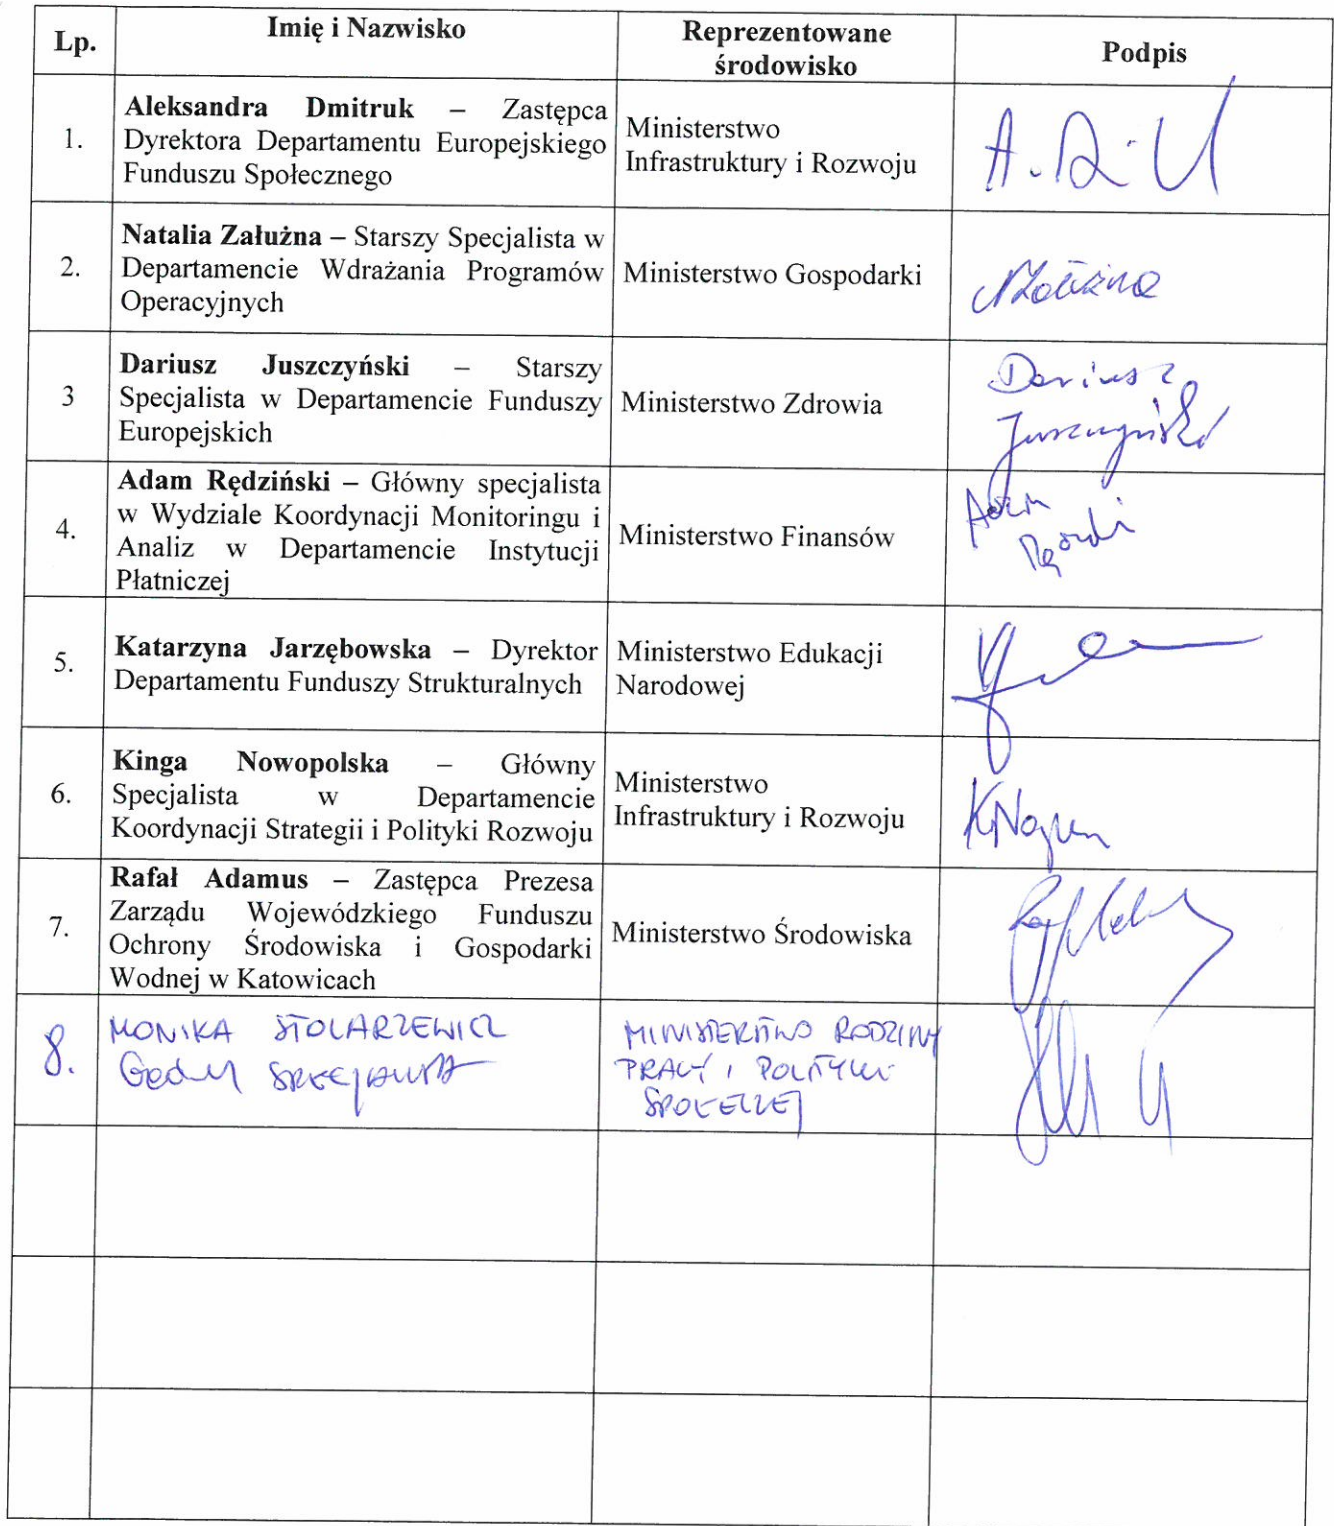 Lp.
Imię i Nazwisko
Reprezentowane
środowisko
Podpis
1.
Aleksandra Dmitruk – Zastępca
Dyrektora Departamentu Europejskiego
Funduszu Społecznego
Ministerstwo
Infrastruktury i Rozwoju
2.
Natalia Załużna – Starszy Specjalista w
Departamencie Wdrażania Programów
Operacyjnych
Ministerstwo Gospodarki
3
Dariusz Juszczyński – Starszy
Specjalista w Departamencie Funduszy
Europejskich
Ministerstwo Zdrowia
Dariusz
Juszczyński
4.
Adam Rędziński – Główny specjalista
w Wydziale Koordynacji Monitoringu i
Analiz w Departamencie Instytucji
Płatniczej
Ministerstwo Finansów
Adam
5.
Katarzyna Jarzębowska – Dyrektor
Departamentu Funduszy Strukturalnych
Ministerstwo Edukacji
Narodowej
6.
Kinga Nowopolska – Główny
Specjalista w Departamencie
Koordynacji Strategii i Polityki Rozwoju
Ministerstwo
Infrastruktury i Rozwoju
7.
Rafał Adamus – Zastępca Prezesa
Zarządu Wojewódzkiego Funduszu
Ochrony Środowiska i Gospodarki
Wodnej w Katowicach
Ministerstwo Środowiska
8.
MONIKA STOLARZEWICZ
MINISTERSTWO RODZINY
PRACY I POLITYKI
SPOŁECZNEJ